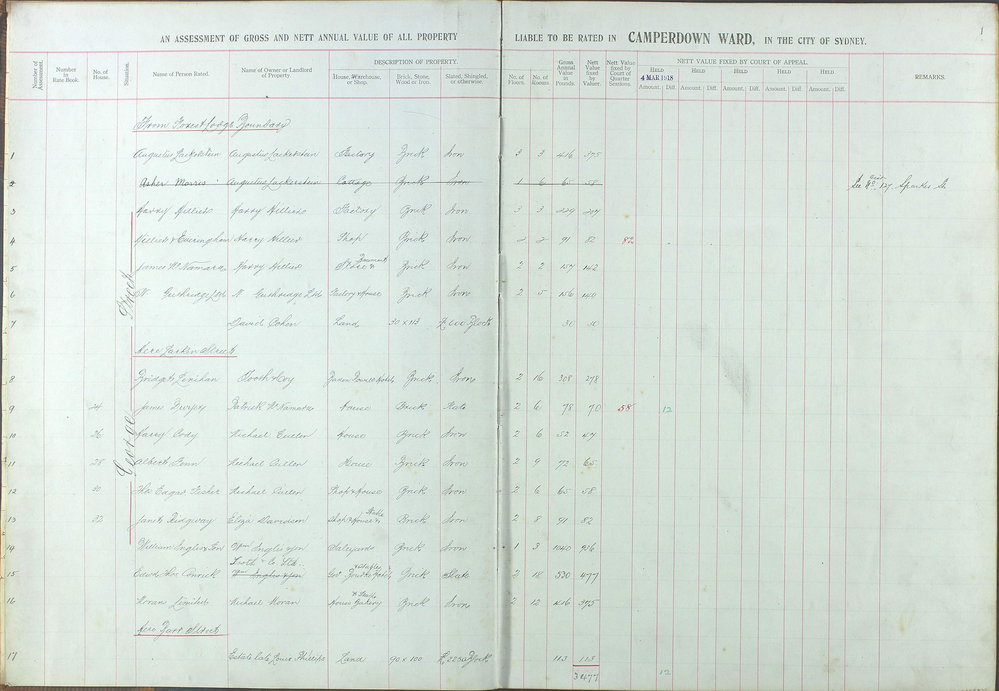 AN ASSESSMENT OF GROSS AND NETT ANNUAL VALUE OF ALL PROPERTY LIABLE TO BE RATED IN CAMPERDOWN WARD, IN THE CITY OF SYDNEY. 1
DESCRIPTION OF PROPERTY. NETT VALUE FIXED BY COURT OF APPEAL.
Number of Assessment. Number in Rate Book. No. of House. Situation. Name of Person Rated. Name of Owner or Landlord of Property. House, Warehouse, or Shop. Brick, Stone, Wood or Iron. Slated, Shingled, or otherwise. No. of Floors. No. of Rooms Gross Annual Value in Pounds. Nett Value fixed by Valuer. Nett Value fixed by Court of Quarter Sessions. HELD HELD HELD HELD HELD REMARKS.
4 MAR 1918
Amount. Diff. Amount. Diff. Amount. Diff. Amount. Diff. Amount. Diff.
George Street
From Forest Lodge Boundary
1 Augustus Factory Brick Iron 3 3 416 375
2 Asher Morris Augustus Cottage Brick Iron 1 6 65 58 See 127 Sparkes St
3 Harry Hillier Harry Hillier Factory Brick Iron 3 3
4 Hillier & Everingham Harry Hillier Shop Brick Iron 2 2 91 82 82
5 James McNamara Harry Hillier Store & Basement Brick Iron 2 2 157 142
6 Guthridge Ltd Guthridge Ltd Factory & House Brick Iron 2 5 156 140
7 David Cohen Land 30 x 113 Block 30
Acre Larkin Street
8 Bridget Lenihan Tooth & Coy Hotel Brick Iron 2 16 308 278
9 24 James Dwyer Patrick McNamara House Brick Slate 2 6 78 70 58 12
10 26 Harry Cody Michael Cullen House Brick Iron 2 6 52 47
11 28 Albert Michael Cullen House Brick Iron 2 9 72 65
12 30 Edgar Fisher Michael Cullen Shop & House Brick Iron 2 6 65 58
13 32 Janet Ridgway Eliza Davidson Shop & House & Stable Brick Iron 2 8 91 82
14 William Inglis & Son Wm Inglis & Son Saleyards Brick Iron 1 3 1040 936
Tooth & Co Ltd
15 Wm Inglis & Son & Stables Hotel Brick Slate 2 18 530 477
16 Moran Limited Michael Moran House Bakery & Brick Iron 2 12 416 375
Acre Barr Street
17 Estate late Louis Phillips Land 90 x 100 Block 113 113
3477 12